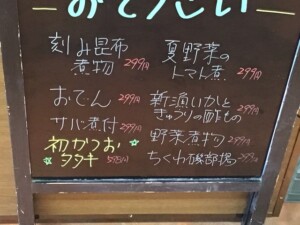 おそうざい
刻み昆布
煮物 299円
おでん 299円
サバ煮付 299円
初かつお
タタキ 598円
夏野菜の
トマト煮 299円
新漬いかと
きゅうりの酢もの 299円
野菜煮物 299円
ちくわ磯部揚 299円